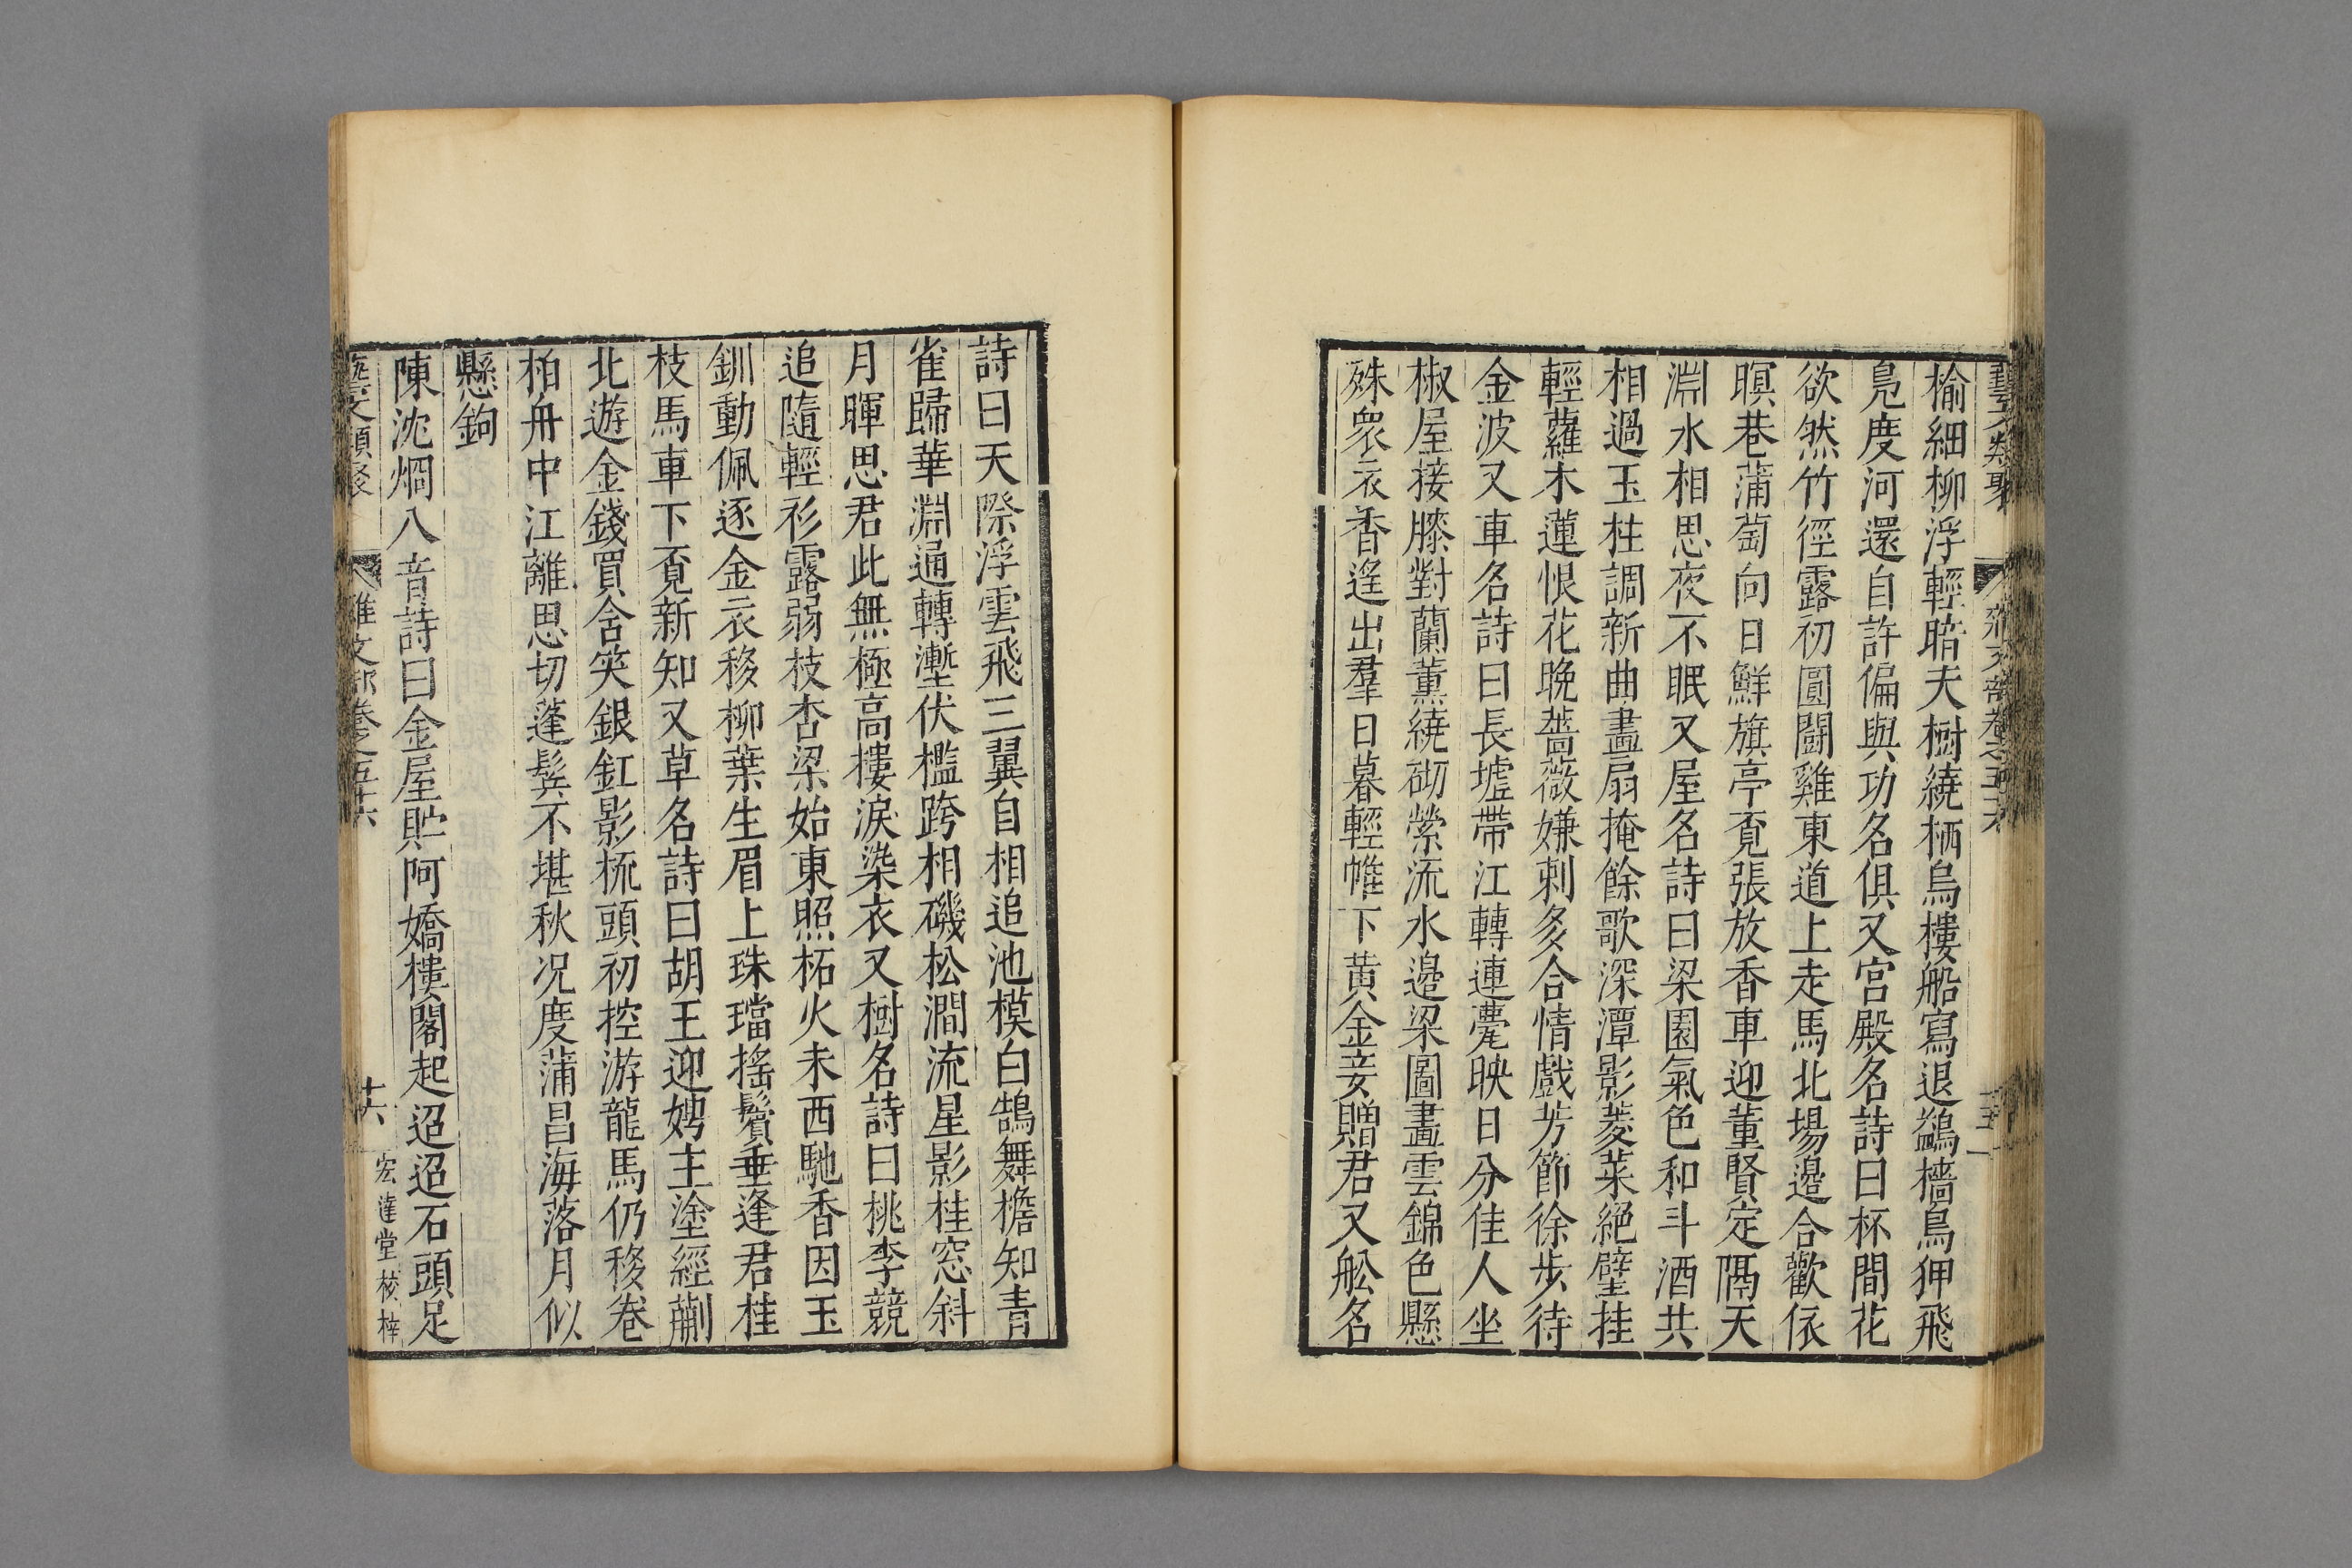 藝文類聚 雜文部卷之五十六 十五
榆細柳浮輕暗大樹繞栖烏樓船寫退鷁檣烏狎飛
鳧度河還自許偏與功名俱又宮殿名詩曰杯間花
欲然竹徑露初圓鬪雞東道上走馬北場邊合歡依
暝巷蒲萄向日鮮旗亭覔張放香車迎董賢定隔天
淵水相思夜不眠又屋名詩曰梁園氣色和斗酒共
相過玉柱調新曲畫扇掩餘歌深潭影菱菜絕壁挂
輕蘿木蓮恨花晚薔薇嫌刺多合情戲芳節徐步待
金波又車名詩曰長墟帶江轉連甍映日分佳人坐
椒屋接膝對蘭薰繞砌縈流水邊梁圖畫雲錦色懸
殊衆衣香遙出羣日暮輕帷下黄金妾贈君又舩名
詩曰天際浮雲飛三翼自相追池模白鵠舞檐知青
雀歸華淵通轉壍伏檻跨相磯松澗流星影桂窓斜
月暉思君此無極高樓淚染衣又樹名詩曰桃李競
追隨輕衫露弱枝杏梁始東照柘火未西馳香因玉
釧動佩逐金衣移柳葉生眉上珠璫搖鬢垂逢君桂
枝馬車下覔新知又草名詩曰胡王迎娉主塗經蒯
北遊金錢買含笑銀缸影梳頭初控游龍馬仍移卷
柏舟中江離思切蓬鬂不堪秋况度蒲昌海落月似
懸鉤
陳沈烱八音詩曰金屋貯阿嬌樓閣起迢迢石頭足
藝文類聚 雜文部卷之五十六 十六 宏達堂校梓